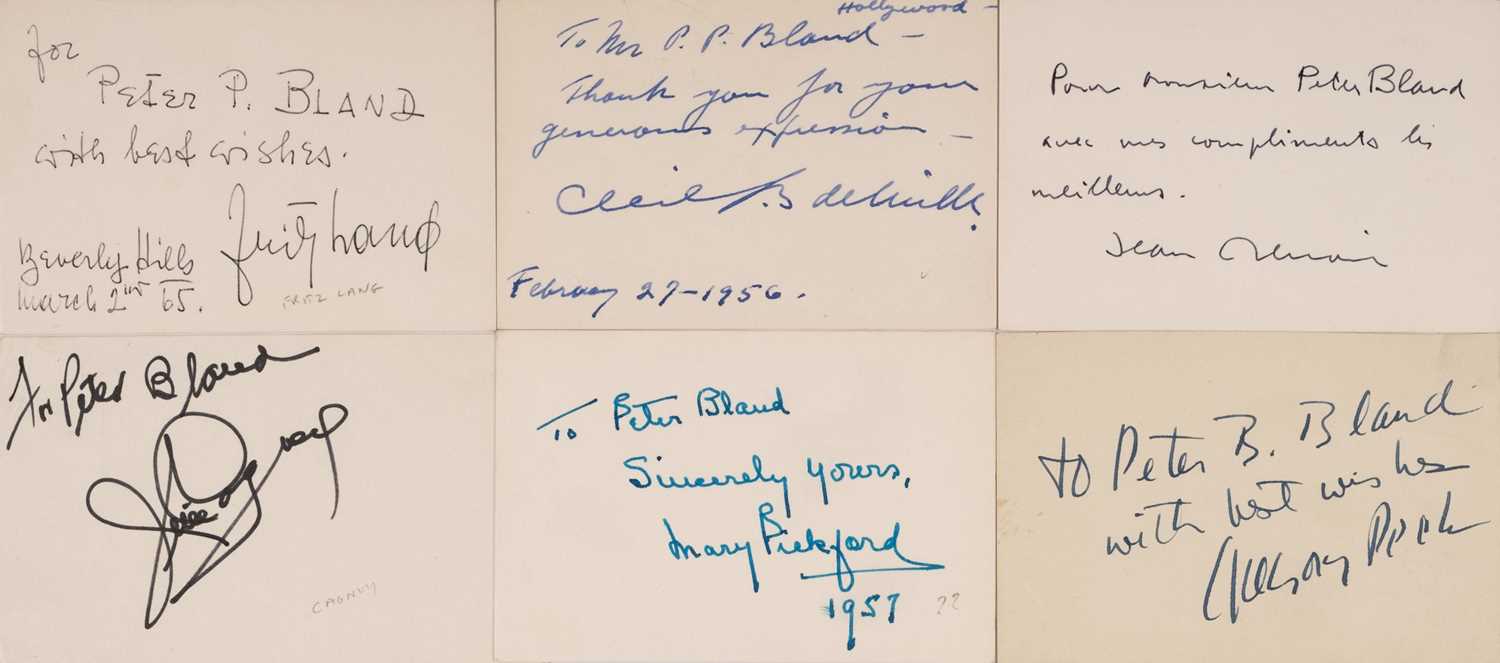 for
PETER P. BLAND
with best wishes.
Fritz Lang
Beverly Hills
March 2nd 65.
FRITZ LANG
Hollywood -
To Mr P. P. Bland -
Thank you for your
generous expression -
Cecil B deMille.
February 27-1956.
Pour monsieur Peter Bland
avec mes compliments les
meilleurs.
Jean Renoir
For Peter Bland
CAGNEY
To Peter Bland
Sincerely Yours,
Mary Pickford
1957
22
to Peter B. Bland
with best wishes
Gregory Peck